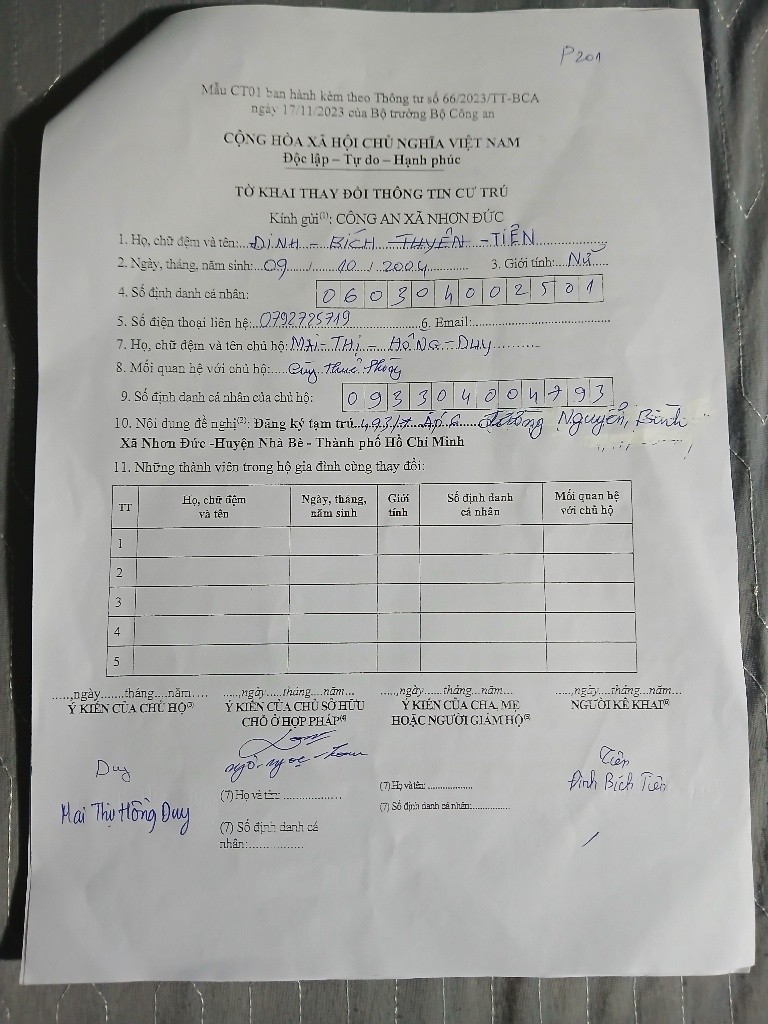 P201
Mẫu CT01 ban hành kèm theo Thông tư số 66/2023/TT-BCA
ngày 17/11/2023 của Bộ trưởng Bộ Công an
CỘNG HÒA XÃ HỘI CHỦ NGHĨA VIỆT NAM
Độc lập – Tự do – Hạnh phúc
TỜ KHAI THAY ĐỔI THÔNG TIN CƯ TRÚ
Kính gửi(1): CÔNG AN XÃ NHƠN ĐỨC
1. Họ, chữ đệm và tên:...ĐINH - BÍCH - THUYÊN - TIÊN
2. Ngày, tháng, năm sinh:...09 / 10 / 2004 3. Giới tính:...Nữ
4. Số định danh cá nhân: 060304002501
5. Số điện thoại liên hệ: 0792725719 6. Email:
7. Họ, chữ đệm và tên chủ hộ: MAI - THỊ - HỒNG - DUY
8. Mối quan hệ với chủ hộ: Cùng thuê phòng
9. Số định danh cá nhân của chủ hộ: 093304004793
10. Nội dung đề nghị(2): Đăng ký tạm trú 493/7 Nguyễn, Bình
Xã Nhơn Đức -Huyện Nhà Bè - Thành phố Hồ Chí Minh
11. Những thành viên trong hộ gia đình cùng thay đổi:
TT Họ, chữ đệm và tên Ngày, tháng, năm sinh Giới tính Số định danh cá nhân Mối quan hệ với chủ hộ
1
2
3
4
5
.....,ngày.......tháng....năm.... ....,ngày.....tháng....năm... ....,ngày.....tháng...năm... ....,ngày....tháng...năm...
Ý KIẾN CỦA CHỦ HỘ(3) Ý KIẾN CỦA CHỦ SỞ HỮU CHỖ Ở HỢP PHÁP(4) Ý KIẾN CỦA CHA, MẸ HOẶC NGƯỜI GIÁM HỘ(5) NGƯỜI KÊ KHAI(6)
Duy
Mai Thị Hồng Duy
Tiên
Đinh Bích Tiên
(7) Họ và tên: ................
(7) Số định danh cá
nhân:...............
(7) Họ và tên: ................
(7) Số định danh cá nhân:.............